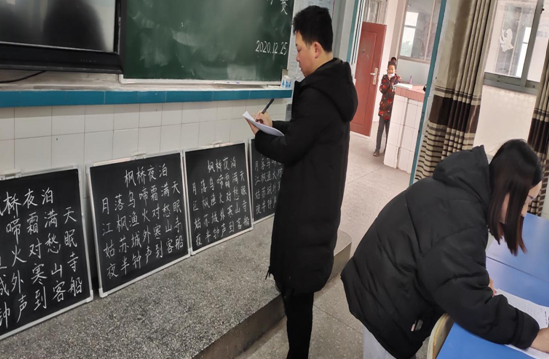 2020.12.25
枫桥夜泊
啼霜满天
渔火对愁眠
城外寒山寺
钟声到客船
枫桥夜泊
月落乌啼霜满天
江枫渔火对愁眠
姑苏城外寒山寺
夜半钟声到客船
枫桥夜泊
月落乌啼霜满天
江枫渔火对愁眠
姑苏城外寒山寺
夜半钟声到客船